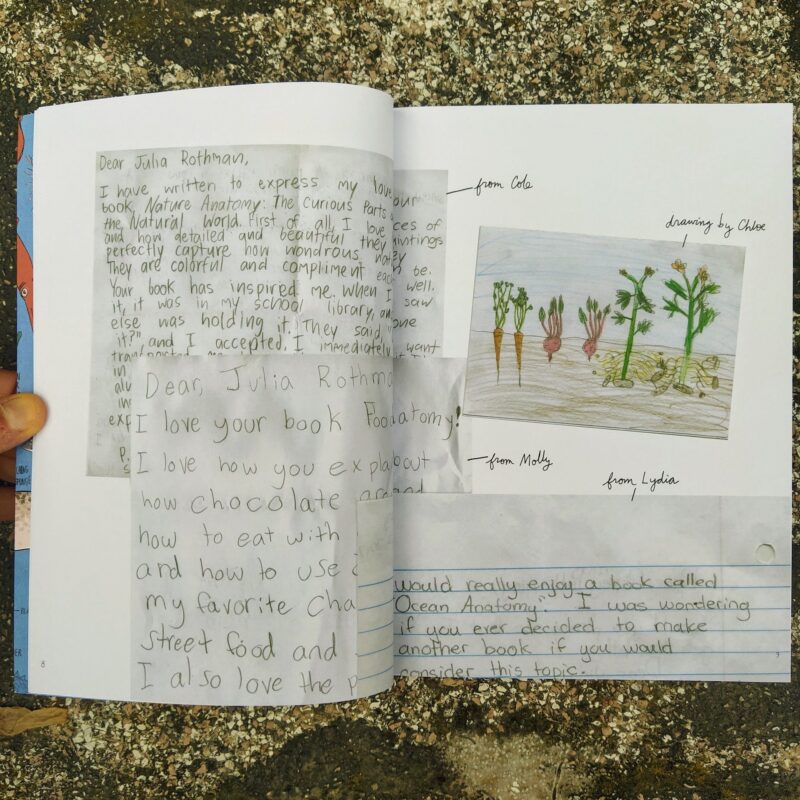 Dear Julia Rothman,
I have written to express my love
book Nature Anatomy: The Curious Parts
the Natural World. First of all, I love
and how detailed and beautiful they
perfectly capture how wondrous
They are colorful and compliment
Your book has inspired me. When I
it, it was in my school library,
else was holding it. They said "
it?" and I accepted. I immediately
Dear, Julia
I love your book
I love how you
how chocolate
how to eat with
and how to use
my favorite
street food and
I also love the
8
our
ces of
paintings
be.
well.
saw
want
from Cole
drawing by Chloe
Foodatomy!
explain about
from Molly
from Lydia
would really enjoy a book called
"Ocean Anatomy". I was wondering
if you ever decided to make
another book if you would
consider this topic.